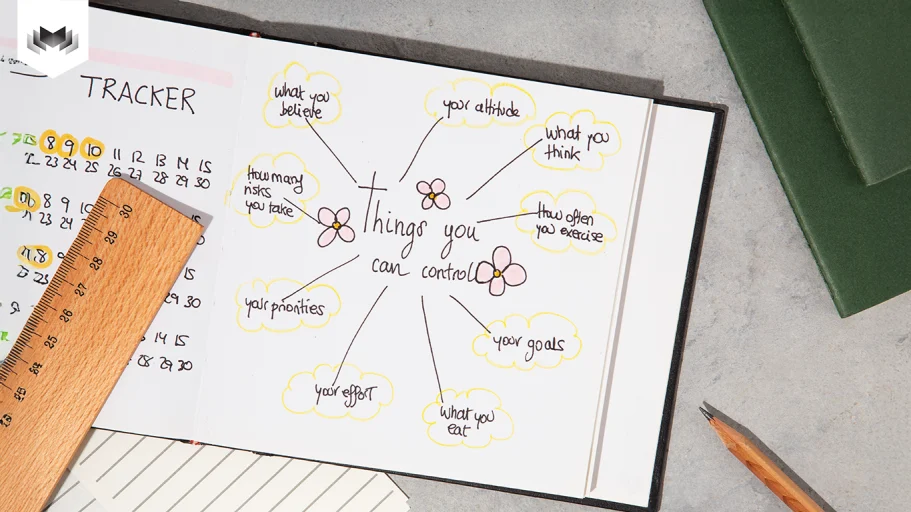 TRACKER
8 9 10 11 12 13 14 15
23 24 25 26 27 28 29 30
8 9 10
23 24
8 9
29 30
14 15
28 29 30
30
29
28
27
26
25
24
23
what you
believe
your attitude
what you
think
How many
risks
you take
How often
you exercise
Things you
can control
your priorities
your goals
your effort
what you
eat